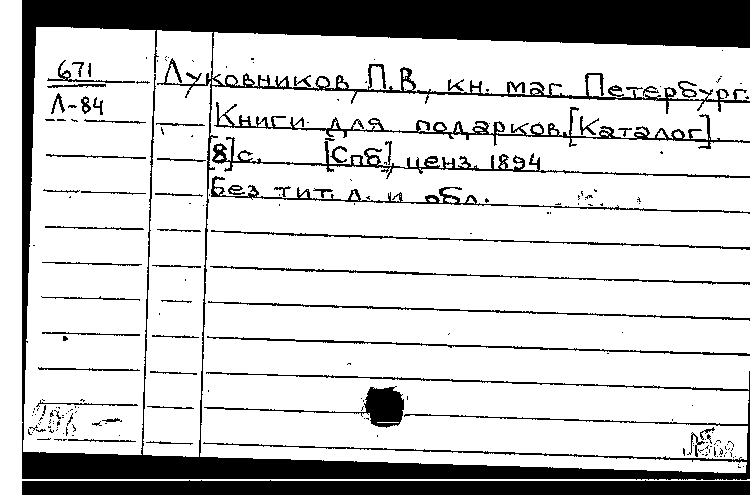 671
Л-84
Луковников, П.В., кн. маг. Петербург.
Книги для подарков. [Каталог].
[8] с. [Спб], ценз. 1894
Без тит. л. и обл.